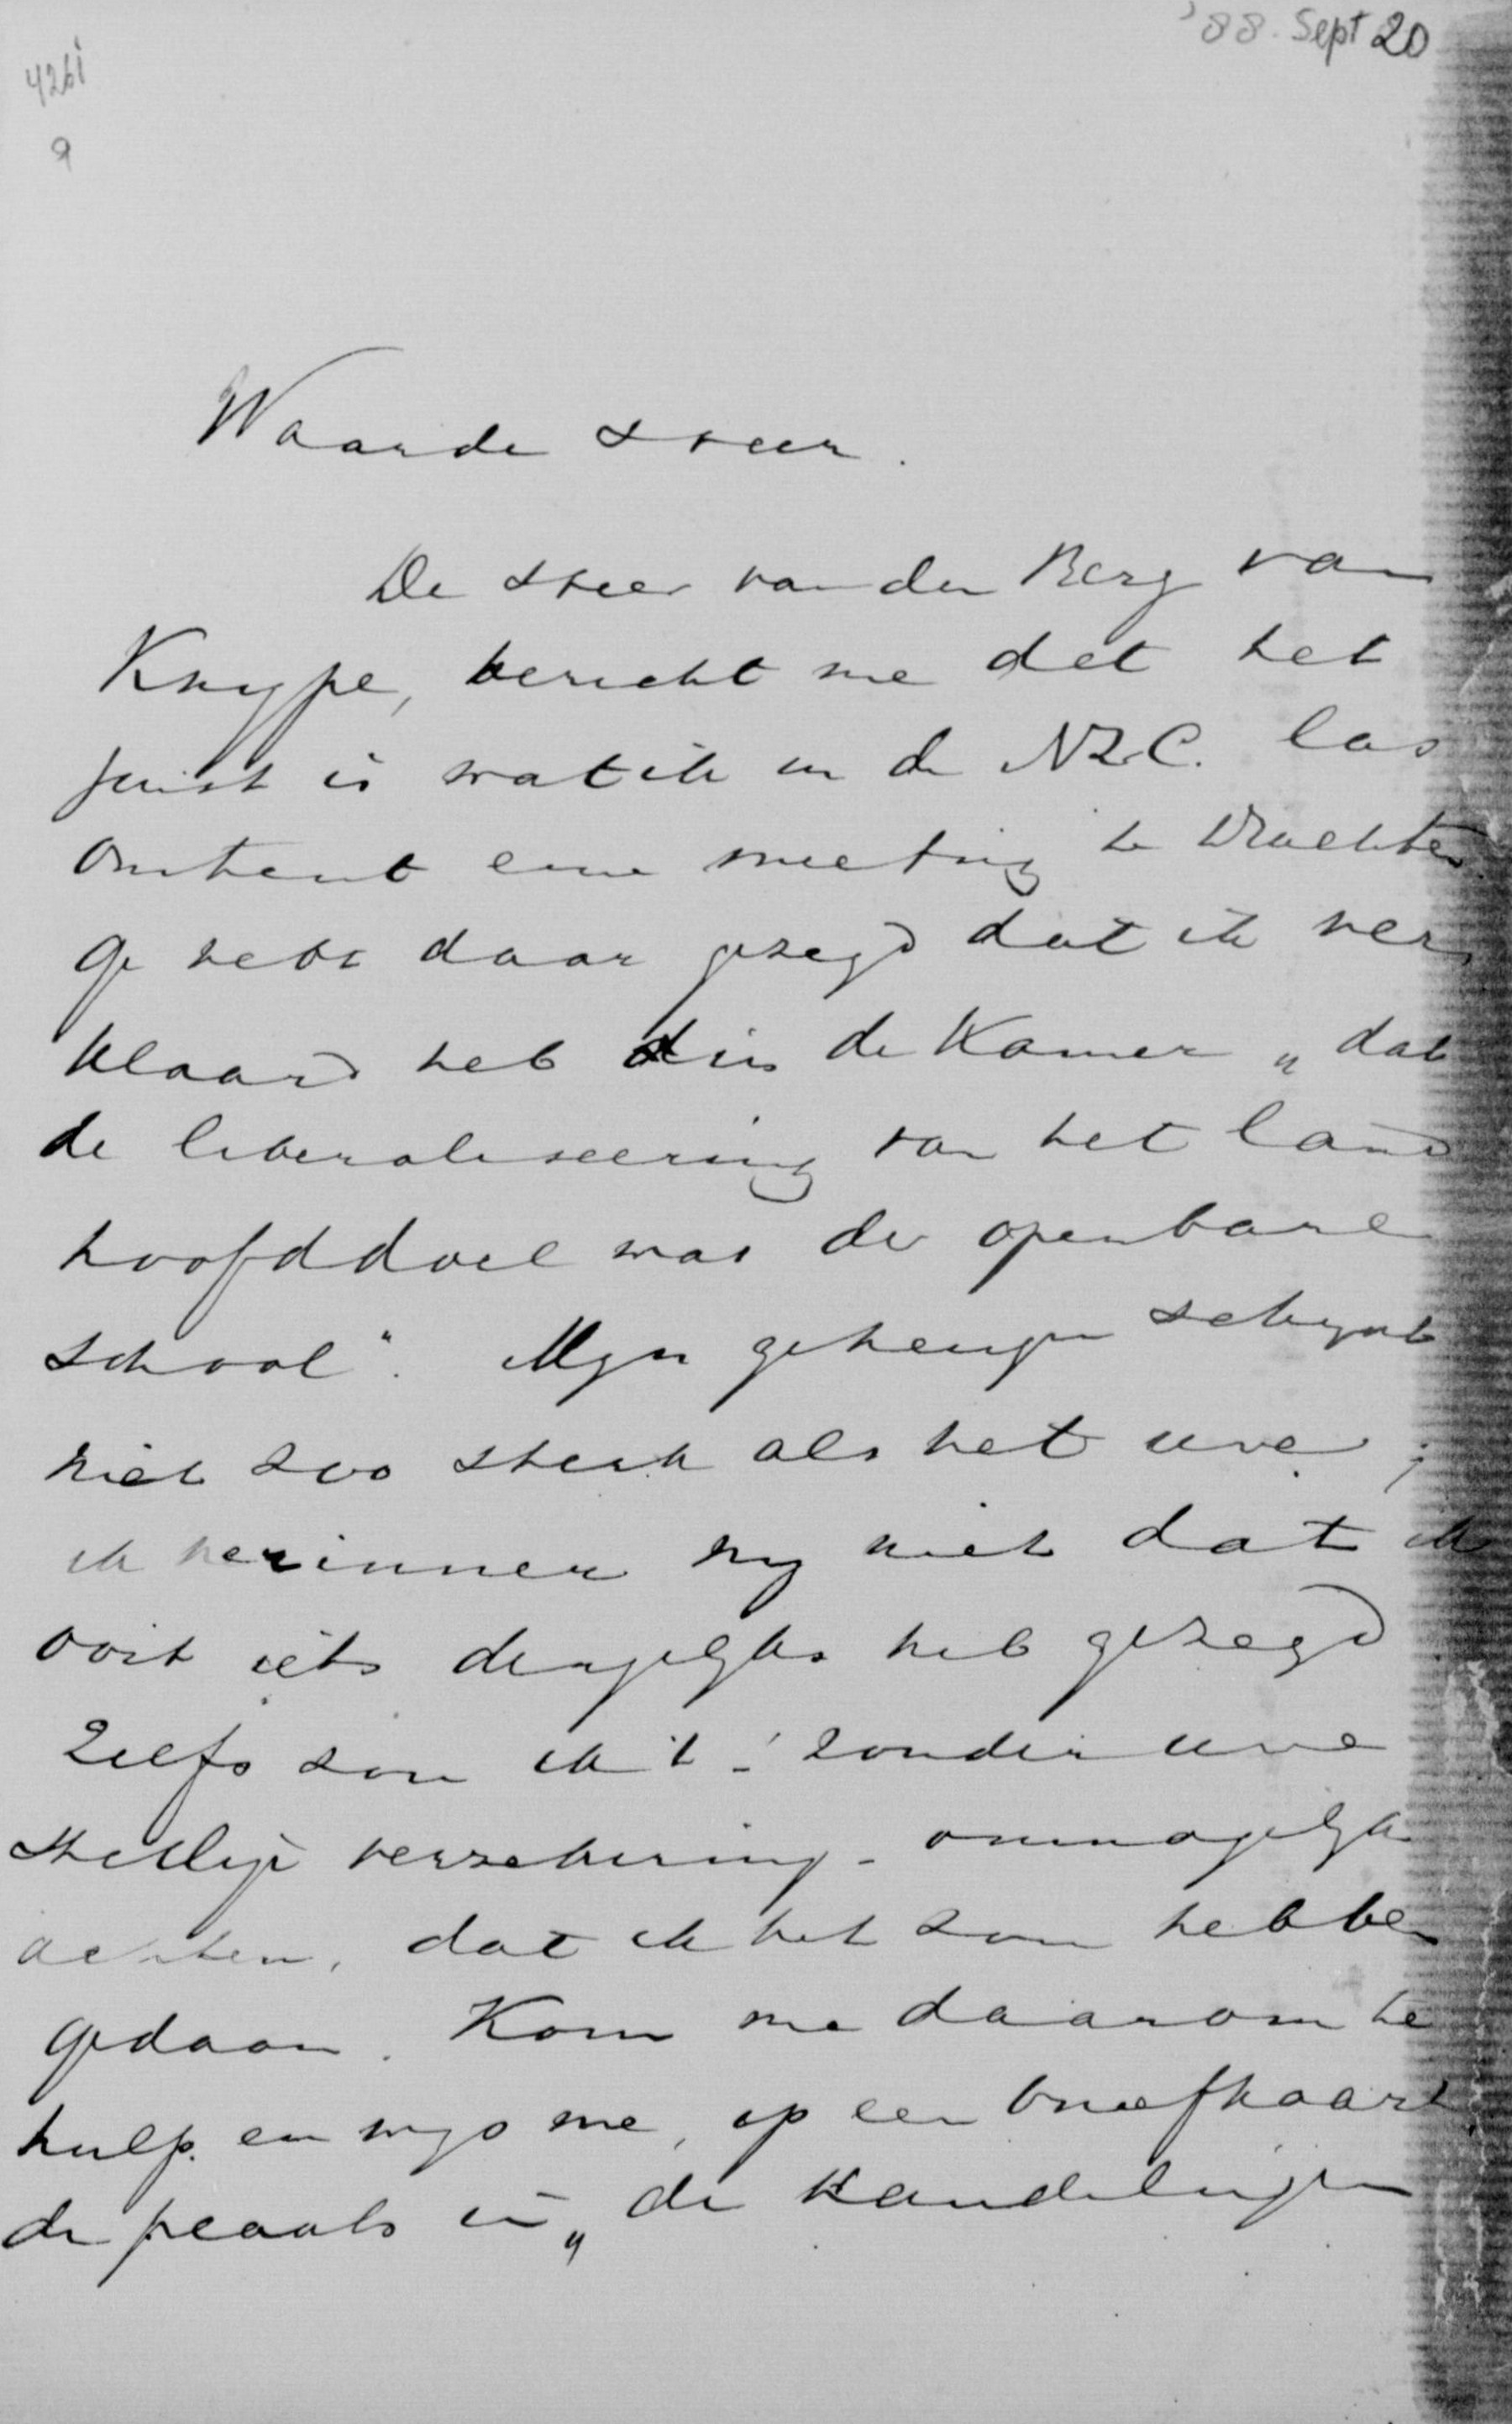 '88. Sept 20
426i
9
Waarde Heer.
De Heer van den Berg van
Knype, bericht me dat het
juist is wat ik in de NZC. las
omtrent eene meeting te Drachten.
Ge hebt daar gezegd dat ik ver
klaard heb in de Kamer „dat
de liberaliseering van het land
hoofddoel was der openbare
school". Myn geheugen schynt
niet zoo sterk als het uwe;
ik herinner my niet dat ik
ooit iets dergelyks heb gezegd
Zelfs zou ik 't - zonder uwe
stellige verzekering - onmogelyk
achten, dat ik het zou hebben
gedaan. Kom me daarom te
hulp. en wys me, op een briefkaart,
de plaats in „de Handelingen